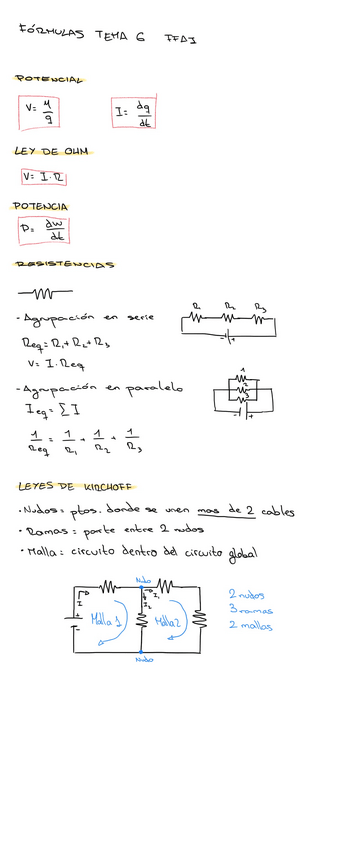 FÓRMULAS TEMA 6 FFAI
POTENCIAL
V = U/q
I = dq/dt
LEY DE OHM
V = I · R
POTENCIA
P = dw/dt
RESISTENCIAS
- Agrupación en serie
R1 R2 R3
Req = R1 + R2 + R3
- +
V = I · Req
- Agrupación en paralelo
1
2
3
Ieq = ΣI
- +
1/Req = 1/R1 + 1/R2 + 1/R3
LEYES DE KIRCHOFF
· Nudos: ptos. donde se unen mas de 2 cables
· Ramas: parte entre 2 nudos
· Malla: circuito dentro del circuito global
Nudo
I I1
I2
2 nudos
3 ramas
+
Malla 1 Malla 2
2 mallas
-
Nudo